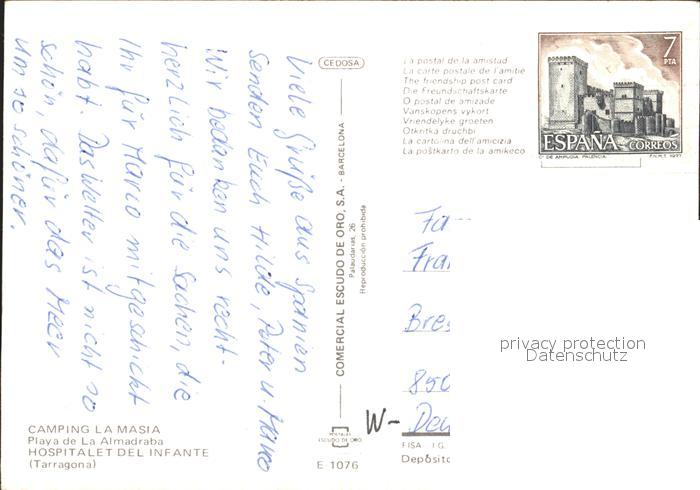 Viele Grüße aus Spanien
senden Euch Hilde, Peter u. Marco
Wir bedanken uns recht-
herzlich für die Sachen, die
Ihr für Marco mitgeschickt
habt. Das Wetter ist nicht so
schön, dafür das Meer
um so schöner.
CAMPING LA MASIA
Playa de La Almadraba
HOSPITALET DEL INFANTE
(Tarragona)
CEDOSA
COMERCIAL ESCUDO DE ORO, S.A. - BARCELONA
Palaudarias, 26
Reproducción prohibida
POSTALES
ESCUDO DE ORO
E 1076
La postal de la amistud
La carte postale de l'amitie
The friendship post card
Die Freundschaftskarte
O postal de amizade
Vanskopens vykort
Vriendelyke groeten
Otkritka druchbi
La cartolina dell'amicizia
La poŝtkarto de la amikeco
7
PTA
ESPAÑA CORREOS
Cº DE AMPUDIA. PALENCIA. F.N.M.T. 1977
Fa
Fra
Bre
850
W-
privacy protection
Datenschutz
FISA I.G.
Depósito